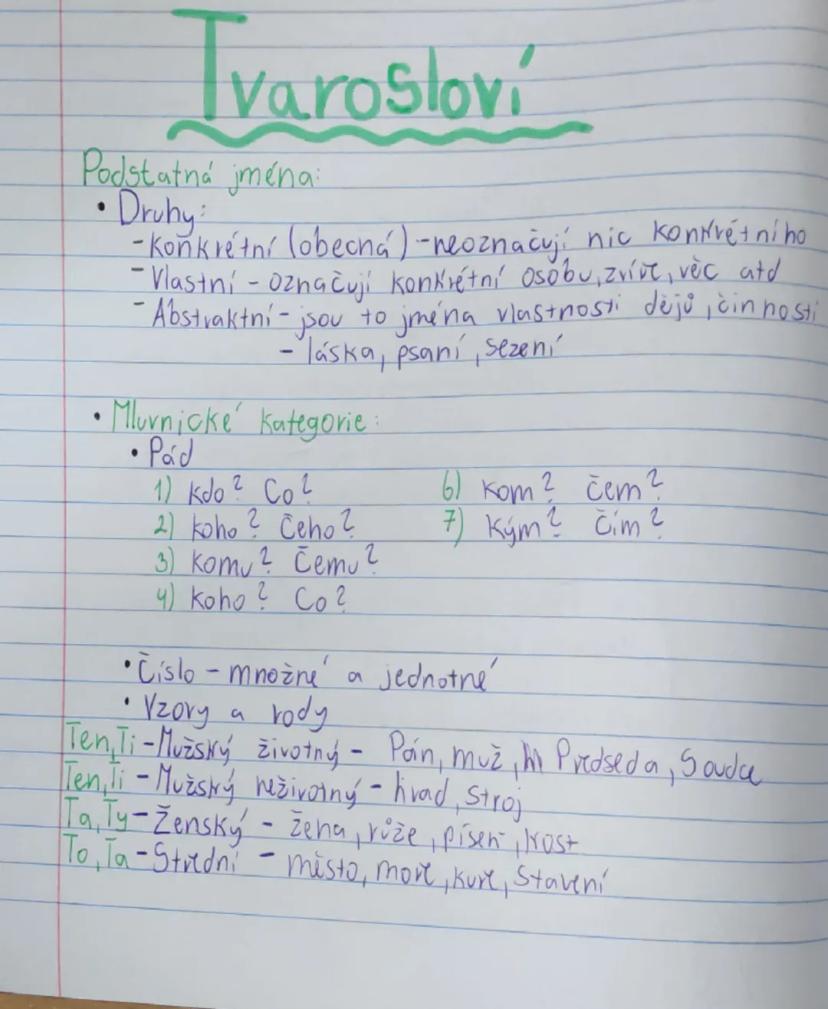 Tvarosloví
Podstatná jména:
• Druhy:
- konkrétní (obecná) - neoznačují nic konkrétního
- Vlastní - označují konkrétní osobu, zvíře, věc atd
- Abstraktní - jsou to jména vlastností dějů, činností
- láska, psaní, sezení
• Mluvnické kategorie:
• Pád
1) kdo? Co? 6) kom? čem?
2) koho? Čeho? 7) kým? čím?
3) komu? Čemu?
4) koho? Co?
• Číslo - množné a jednotné
• Vzory a rody
Ten, Ti - Mužský životný - Pán, muž, Předseda, Soudce
Ten, Ti - Mužský neživotný - hrad, stroj
Ta, Ty - Ženský - žena, růže, píseň, kost
To, Ta - Střední - místo, moře, kuře, Stavení